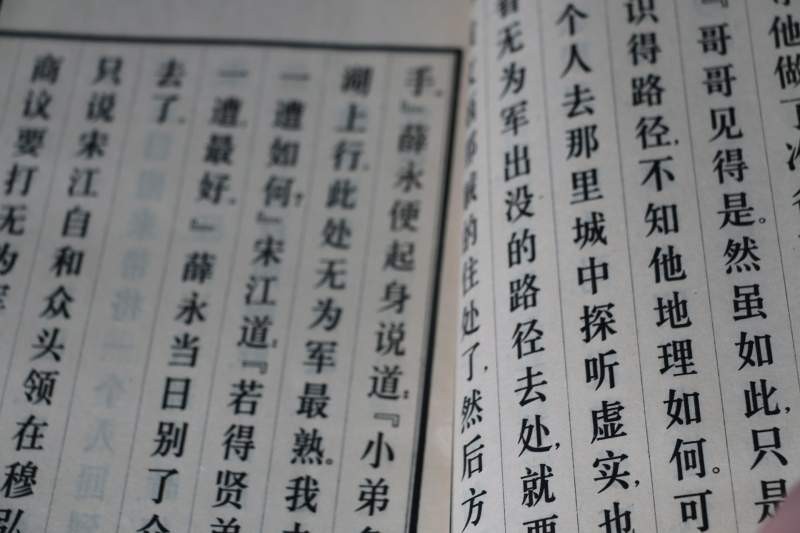 他做了
『哥哥见得是。然虽如此，只是
识得路径，不知他地理如何。可
个人去那里城中探听虚实，也
看无为军出没的路径去处，就要
的住处了，然后方
手。』薛永便起身说道：『小弟
湖上行，此处无为军最熟。我
一遭如何？』宋江道：『若得贤弟
一遭，最好。』薛永当日别了众
去了。
只说宋江自和众头领在穆弘
商议要打无为军